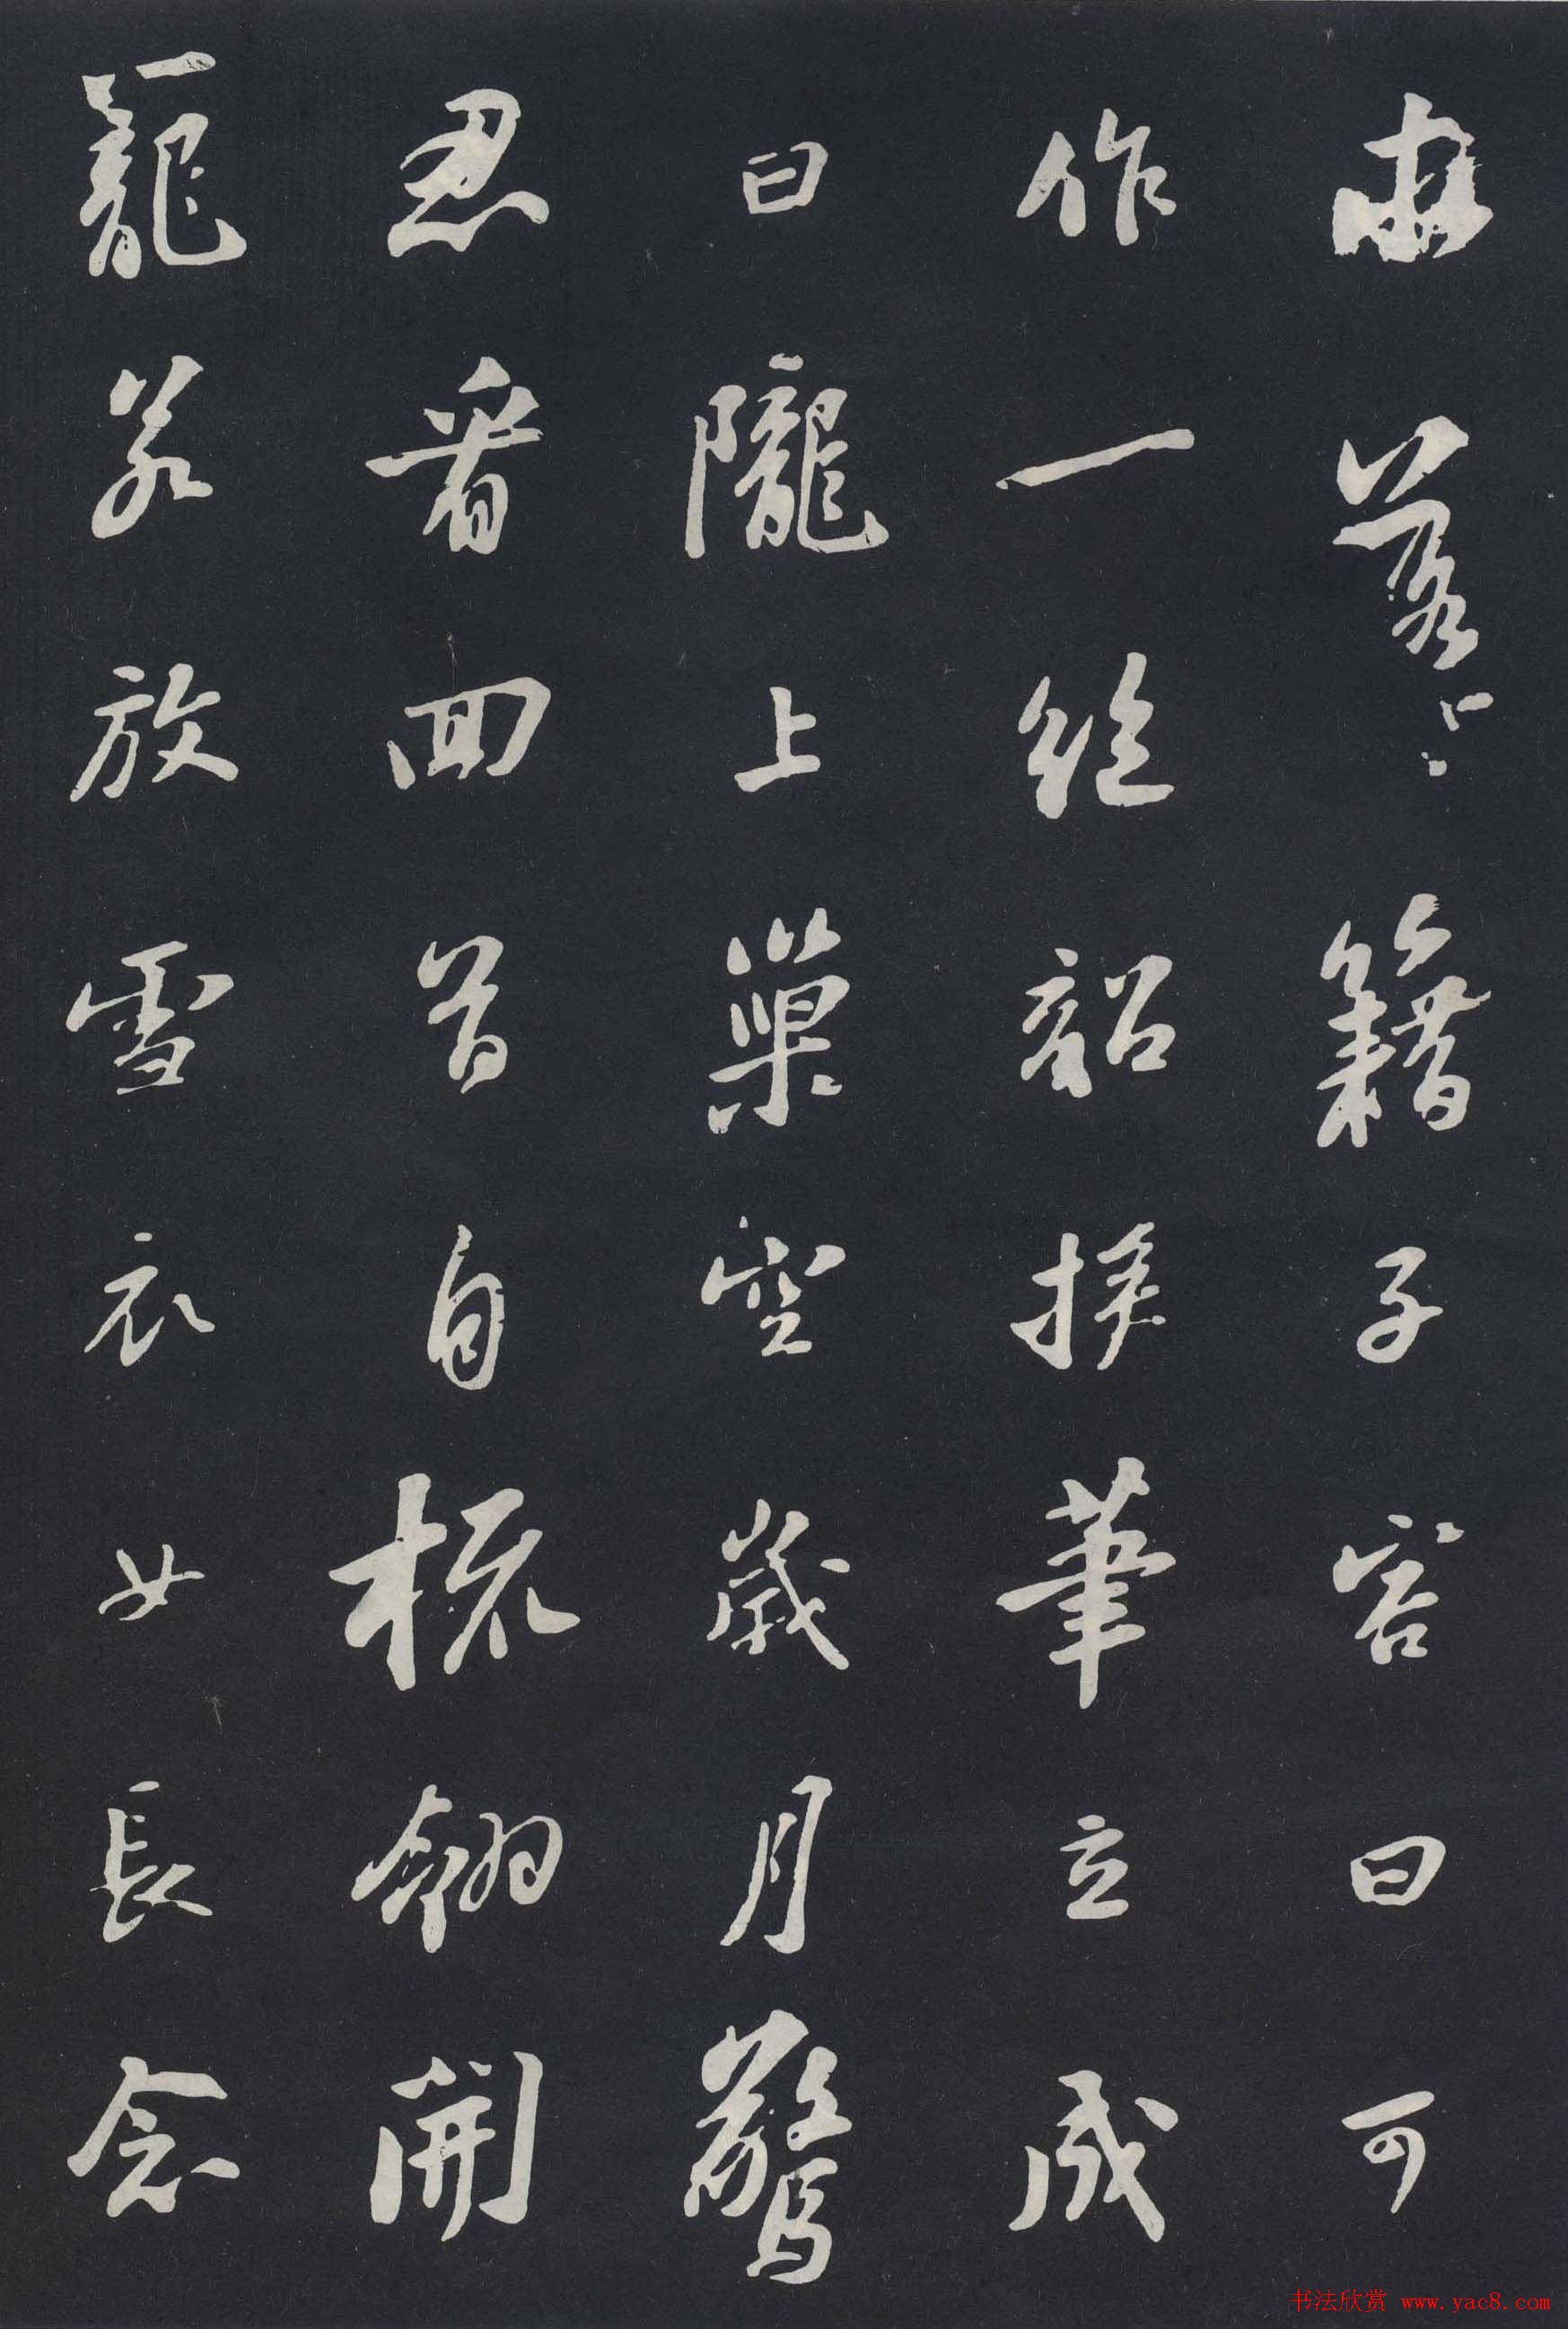 求落籍子容曰可
作一絕韶援筆立成
曰隴上巢空歲月驚
忍看回首自梳翎開
籠若放雪衣女長念
书法欣赏 www.yac8.com